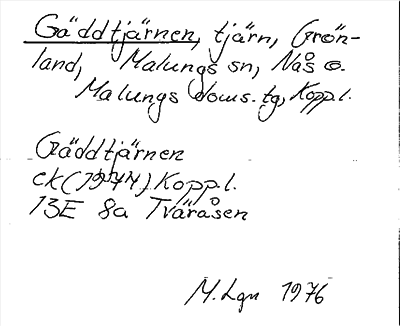 Gäddtjärnen, tjärn, Grön-
land, Malungs sn, Nås o.
Malungs doms. tg, Kopp.l.
Gäddtjärnen
ek (1944) Kopp.l.
13E 8a Tvåråsen
M. Lgn 1976